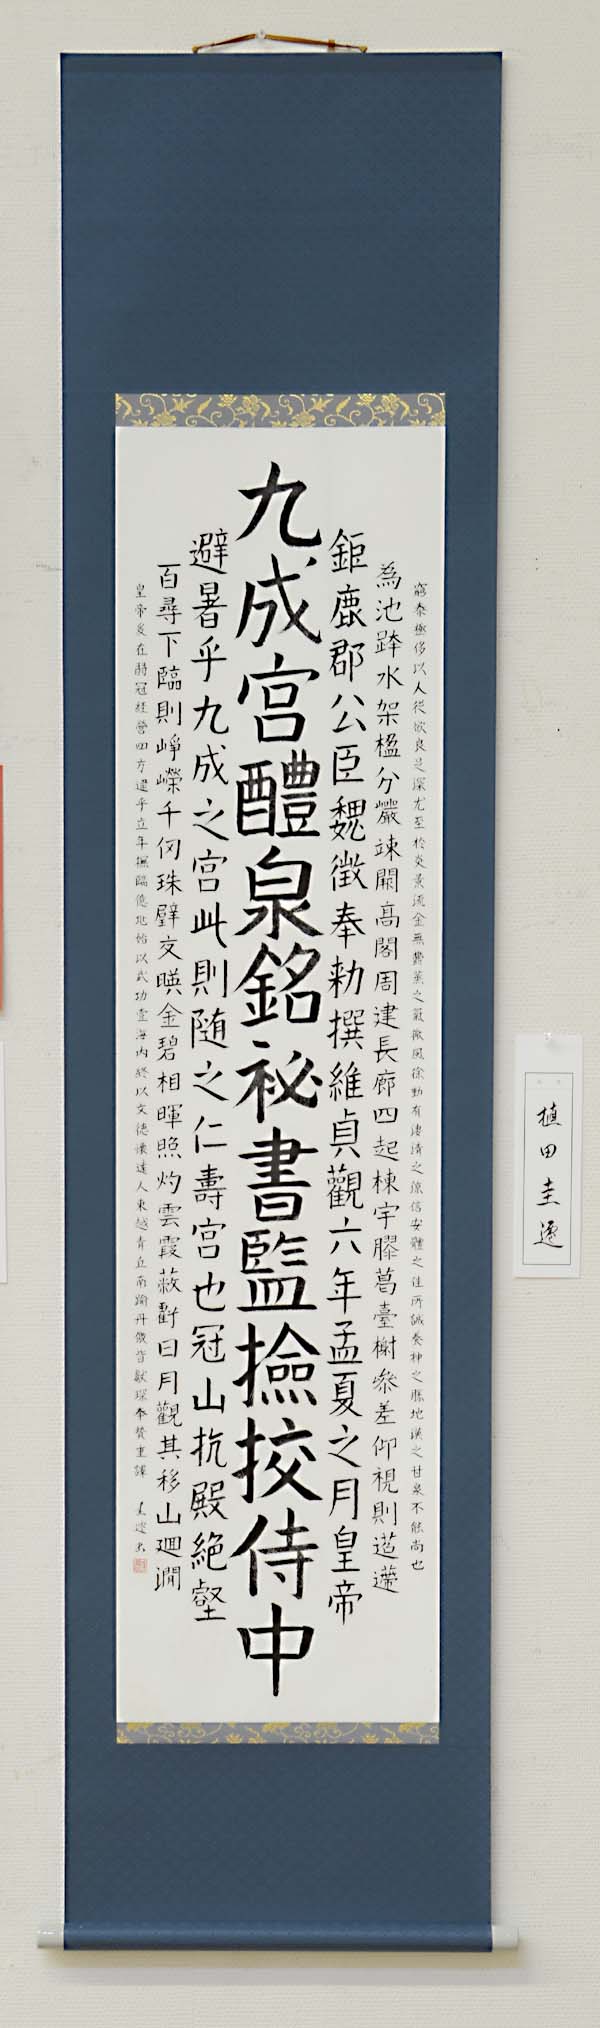 九成宮醴泉銘祕書監撿挍侍中
鉅鹿郡公臣魏徵奉勅撰維貞觀六年孟夏之月皇帝
避暑乎九成之宮此則隨之仁壽宮也冠山抗殿絶壑
為池跨水架楹分巖竦闕高閣周建長廊四起棟宇膠葛臺榭參差仰視則迢遰
百尋下臨則崢嶸千仞珠璧交暎金碧相暉照灼雲霞蔽虧日月觀其移山廻澗
窮泰極侈以人從欲良足深尤至於炎景流金無鬱蒸之氣微風徐動有淒清之涼信安體之佳所誠養神之勝地漢之甘泉不能尚也
皇帝爰在弱冠經營四方逮乎立年撫臨億兆始以武功壹海内終以文德懷遠人東越青丘南踰丹儌皆獻琛奉贄重譯
植田圭